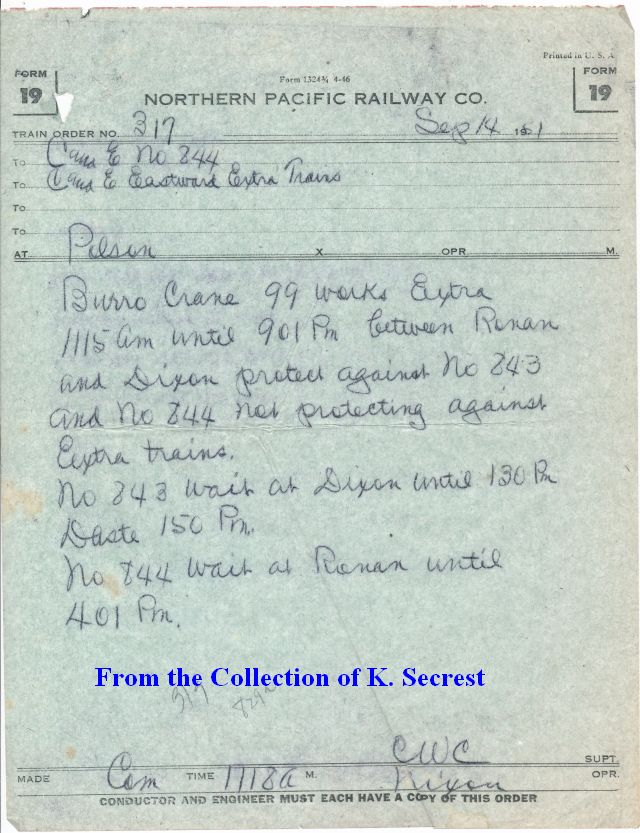 Printed in U. S. A
FORM 19
Form 1324¾ 4-46
FORM 19
NORTHERN PACIFIC RAILWAY CO.
TRAIN ORDER NO. 317 Sep 14 1951
To C and E No 844
To C and E Eastward Extra Trains
To
To
AT Polson X OPR. M.
Burro Crane 99 works Extra
1115 am until 901 Pm between Ronan
and Dixon protect against No 843
and No 844 not protecting against
Extra trains.
No 843 wait at Dixon until 130 Pm
D'Aste 150 Pm.
No 844 wait at Ronan until
401 Pm.
From the Collection of K. Secrest
317
CWC SUPT.
MADE Com TIME 1118 A M. Nixon OPR.
CONDUCTOR AND ENGINEER MUST EACH HAVE A COPY OF THIS ORDER